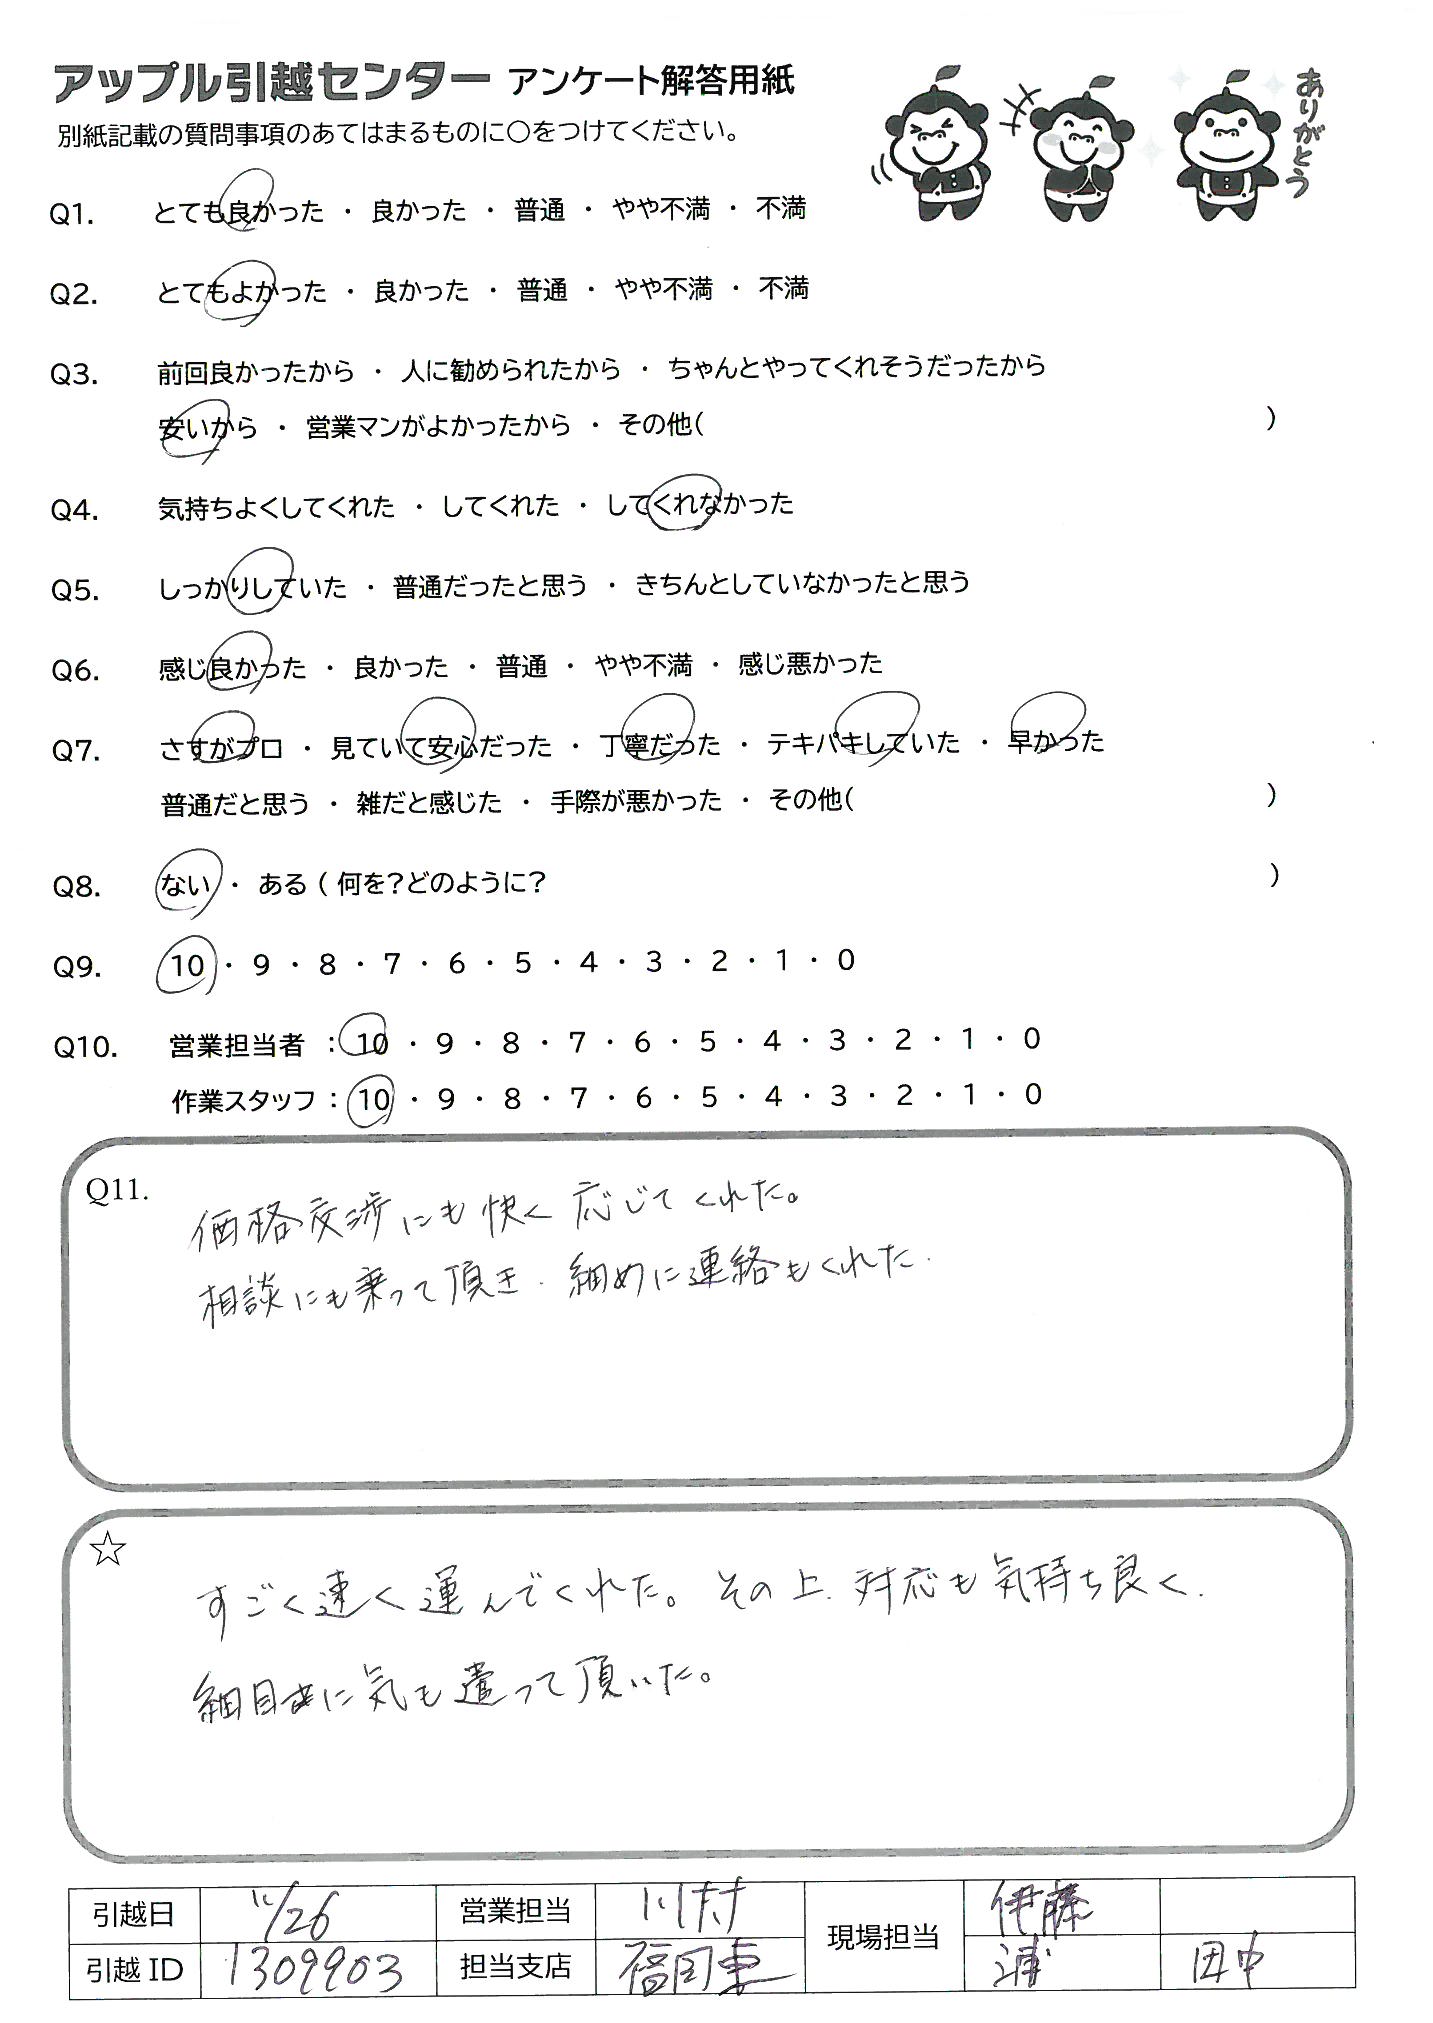 アップル引越センター アンケート解答用紙
別紙記載の質問事項のあてはまるものに○をつけてください。
ありがとう
Q1. とても良かった ・ 良かった ・ 普通 ・ やや不満 ・ 不満
Q2. とてもよかった ・ 良かった ・ 普通 ・ やや不満 ・ 不満
Q3. 前回良かったから ・ 人に勧められたから ・ ちゃんとやってくれそうだったから
安いから ・ 営業マンがよかったから ・ その他( )
Q4. 気持ちよくしてくれた ・ してくれた ・ してくれなかった
Q5. しっかりしていた ・ 普通だったと思う ・ きちんとしていなかったと思う
Q6. 感じ良かった ・ 良かった ・ 普通 ・ やや不満 ・ 感じ悪かった
Q7. さすがプロ ・ 見ていて安心だった ・ 丁寧だった ・ テキパキしていた ・ 早かった
普通だと思う ・ 雑だと感じた ・ 手際が悪かった ・ その他( )
Q8. ない ・ ある ( 何を?どのように? )
Q9. 10 ・ 9 ・ 8 ・ 7 ・ 6 ・ 5 ・ 4 ・ 3 ・ 2 ・ 1 ・ 0
Q10. 営業担当者 : 10 ・ 9 ・ 8 ・ 7 ・ 6 ・ 5 ・ 4 ・ 3 ・ 2 ・ 1 ・ 0
作業スタッフ : 10 ・ 9 ・ 8 ・ 7 ・ 6 ・ 5 ・ 4 ・ 3 ・ 2 ・ 1 ・ 0
Q11.
価格交渉にも快く応じてくれた。
相談にも乗って頂き、細めに連絡もくれた.
☆
すごく速く運んでくれた。その上、対応も気持ち良く、
細目まに気も遣って頂いた。
引越日 11/26 営業担当 川村 現場担当 伊藤
引越 ID 1309903 担当支店 福岡東 浦 田中